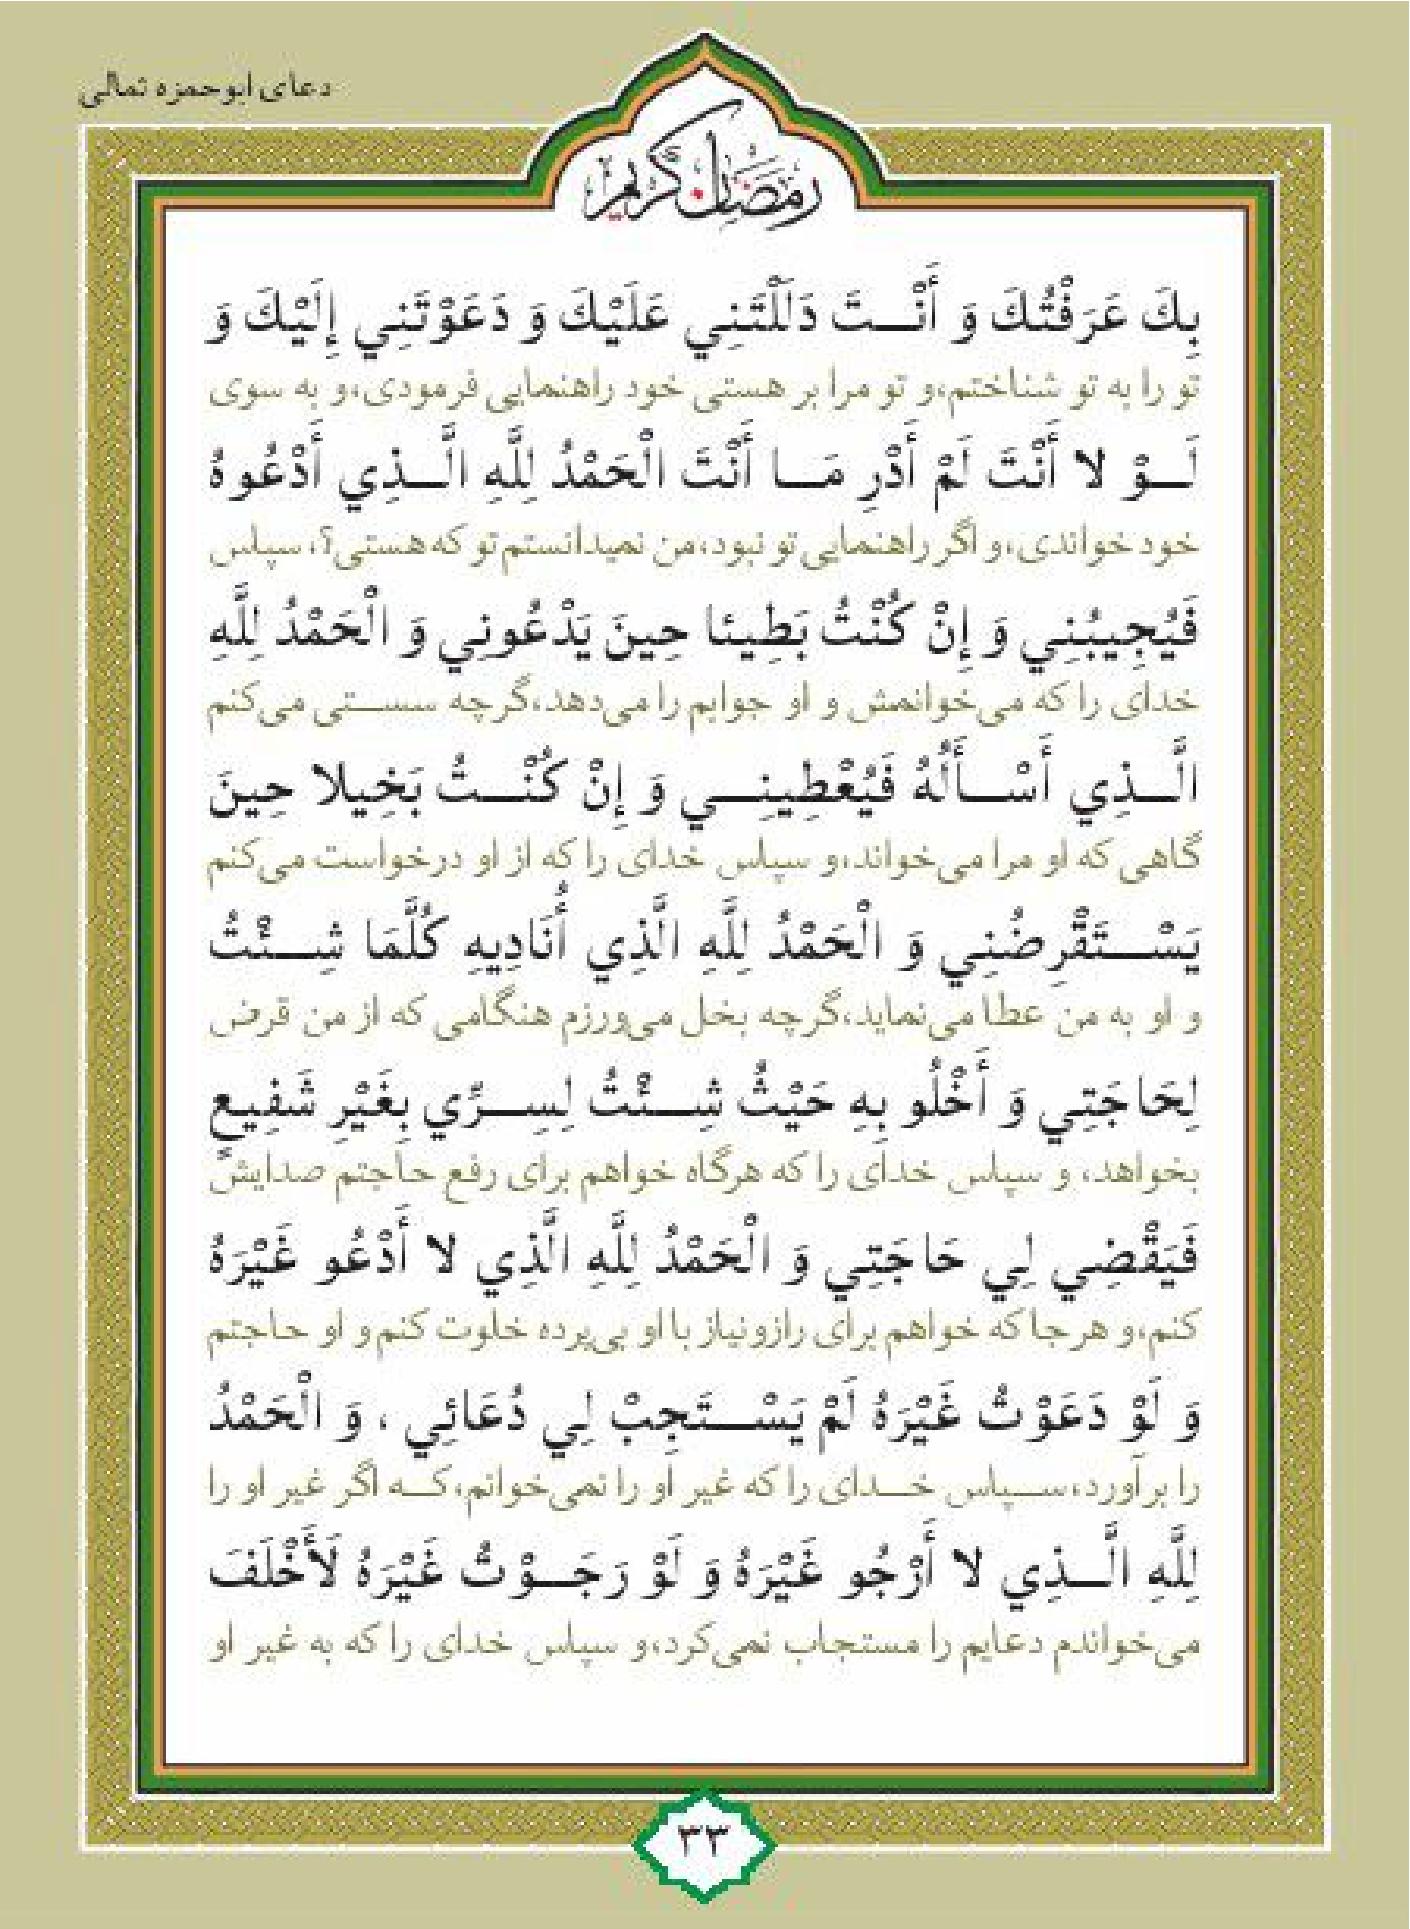 دعای ابوحمزه ثمالی
رمضان کریم
بِكَ عَرَفْتُكَ وَ أَنْــتَ دَلَلْتَنِي عَلَيْكَ وَ دَعَوْتَنِي إِلَيْكَ وَ
تو را به تو شناختم،و تو مرا بر هستی خود راهنمایی فرمودی،و به سوی
لَــوْ لا أَنْتَ لَمْ أَدْرِ مَــا أَنْتَ الْحَمْدُ لِلَّهِ الَّــذِي أَدْعُوهُ
خود خواندی،و اگر راهنمایی تو نبود،من نمیدانستم تو که هستی؟، سپاس
فَيُجِيبُنِي وَ إِنْ كُنْتُ بَطِيئا حِينَ يَدْعُونِي وَ الْحَمْدُ لِلَّهِ
خدای را که می‌خوانمش و او جوابم را می‌دهد،گرچه سســتی می‌کنم
الَّــذِي أَسْــأَلُهُ فَيُعْطِينِــي وَ إِنْ كُنْــتُ بَخِيلا حِينَ
گاهی که او مرا می‌خواند،و سپاس خدای را که از او درخواست می‌کنم
يَسْــتَقْرِضُنِي وَ الْحَمْدُ لِلَّهِ الَّذِي أُنَادِيهِ كُلَّمَا شِــئْتُ
و او به من عطا می‌نماید،گرچه بخل می‌ورزم هنگامی که از من قرض
لِحَاجَتِي وَ أَخْلُو بِهِ حَيْثُ شِــئْتُ لِسِــرِّي بِغَيْرِ شَفِيعٍ
بخواهد، و سپاس خدای را که هرگاه خواهم برای رفع حاجتم صدایش
فَيَقْضِي لِي حَاجَتِي وَ الْحَمْدُ لِلَّهِ الَّذِي لا أَدْعُو غَيْرَهُ
کنم،و هرجا که خواهم برای رازونیاز با او بی‌پرده خلوت کنم و او حاجتم
وَ لَوْ دَعَوْتُ غَيْرَهُ لَمْ يَسْــتَجِبْ لِي دُعَائِي ، وَ الْحَمْدُ
را برآورد،ســپاس خــدای را که غیر او را نمی‌خوانم،کــه اگر غیر او را
لِلَّهِ الَّــذِي لا أَرْجُو غَيْرَهُ وَ لَوْ رَجَــوْتُ غَيْرَهُ لَأَخْلَفَ
می‌خواندم دعایم را مستجاب نمی‌کرد،و سپاس خدای را که به غیر او
۳۳